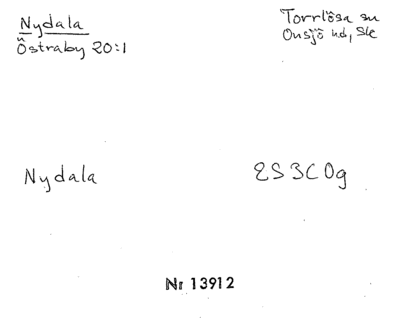 Nydala
Östraby 20:1
Torrlösa sn
Onsjö hd, Sk
Nydala
2S3C0g
Nr 13912